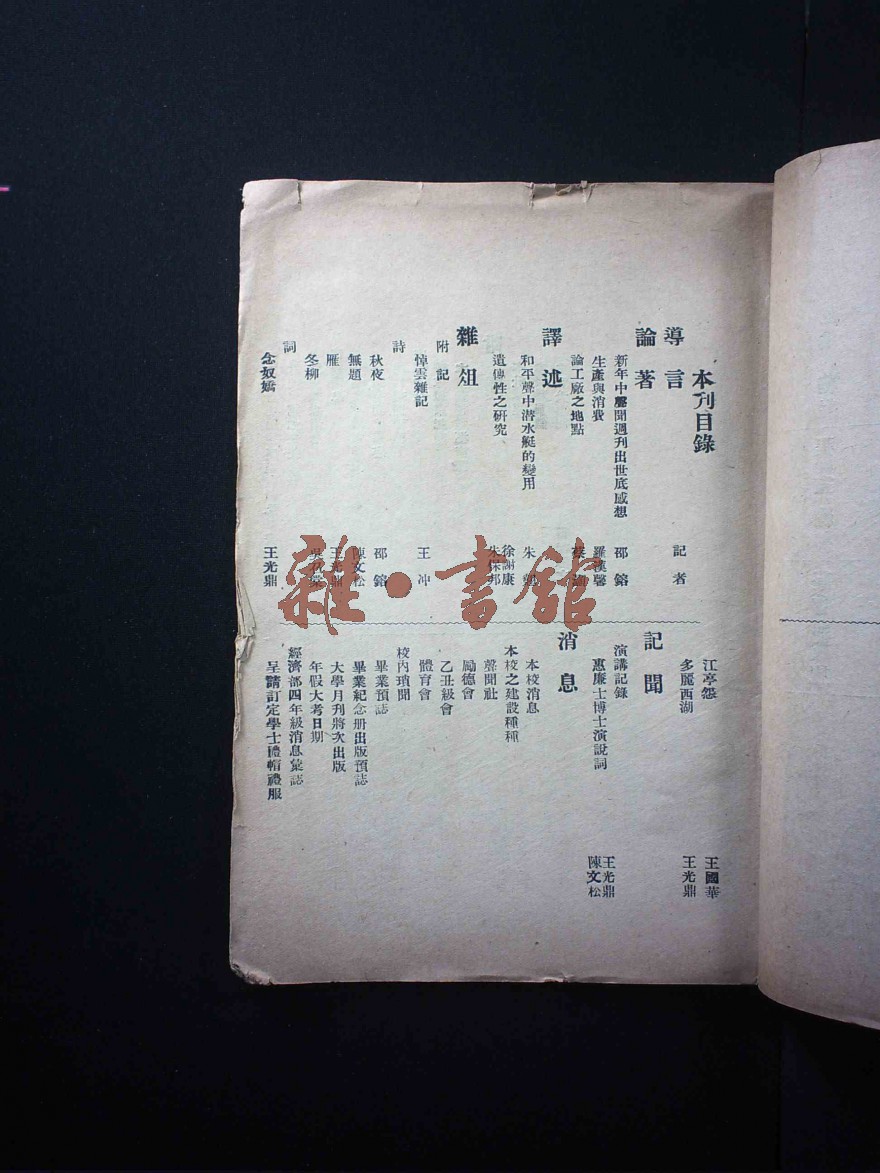 本刊目錄
導言 記者
論著
新年中聲聞週刊出世底感想 邵鎔
生產與消費 羅漢馨
論工廠之地點 蔡
譯述
和平聲中潜水艇的變用 朱
遺傳性之研究 徐謝康 朱保邦
雜俎
附記
悼雲雜記 王冲
詩
秋夜 邵鎔
無題 陳文松
雁 王光鼎
冬柳
詞
念奴嬌 王光鼎
江亭怨 王國華
多麗西湖 王光鼎
記聞
演講記錄
惠廉士博士演說詞 王光鼎 陳文松
消息
本校消息
本校之建設種種
聲聞社
勵德會
乙丑級會
體育會
校內瑣聞
畢業預誌
畢業紀念册出版預誌
大學月刊將次出版
年假大考日期
經濟部四年級消息彙誌
呈請訂定學士禮帽禮服
雜·書館